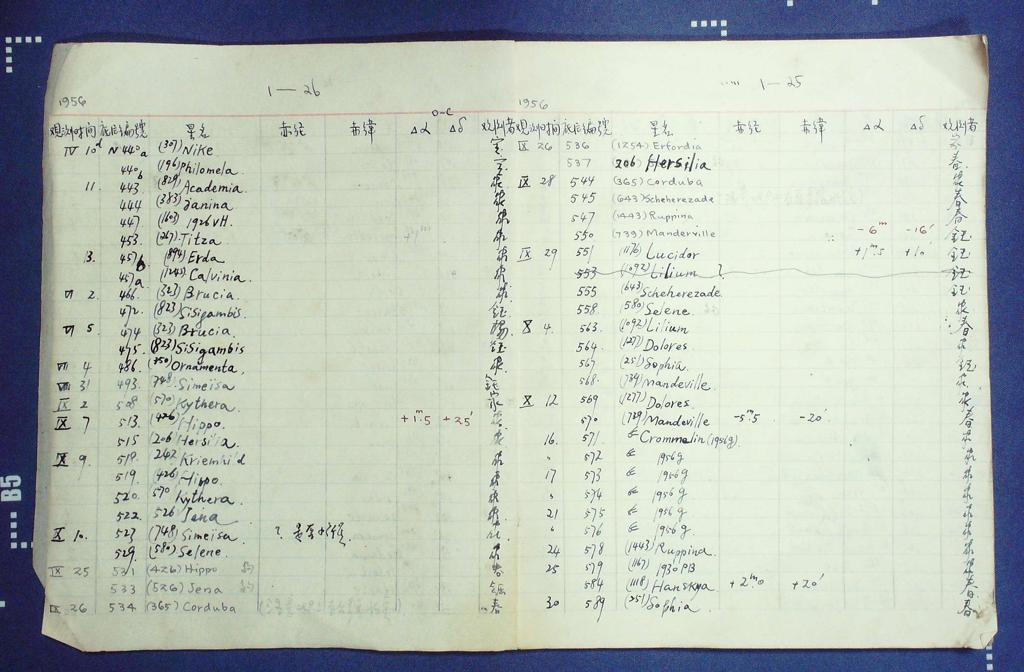 1—26
1956
O-C
观测时间 底片编號 星名 赤经 赤緯 Δα Δδ 观测者
IV 10d N440a (307) Nike
440b (196) Philomela
11. 443 (829) Academia 
444 (383) Janina
447. (1603) 1926VH.
453. (267) Titza
13. 457b (894) Erda
457a (1245) Calvinia
VI 2. 466. (323) Brucia.
472. (823) Sisigambis.
VI 5. 474 (323) Brucia.
475. (823) Sisigambis
VII 4 486. (350) Ornamenta.
VIII 31 493. (748) Simeisa
IX 2 508 (570) Kythera.
IX 7 513. (426) Hippo. +1m.5 +25'
515 (206) Hersilia.
IX 9. 518. 242 Kriemhild
519. (426) Hippo.
520. 570 Kythera
522. 526 Jena
IX 10. 523 (748) Simeisa ?
529. (580) Selene.
IX 25 531 (426) Hippo
533 (526) Jena
IX 26 534 (365) Corduba 春
1—25
1956
观测时间 底片编號 星名 赤经 赤緯 Δα Δδ 观测者
IX 26 536 (1254) Erfordia
537 206 Hersilia 春
IX 28 544 (365) Corduba
545 (643) Scheherezade 春
547 (1443) Ruppina 春
550 (739) Manderville -6m -16' 钰
IX 29 551 (1176) Lucidor +1m.5 +10 钰
553 (1092) Lilium ? 钰
555 (643) Scheherezade 钰
558. (580) Selene.
X 4. 563. (1092) Lilium 春
564. (1277) Dolores
567 (251) Sophia. 钰
568. (739) Mandeville.
X 12 569 (1277) Dolores.
570 (739) Mandeville -5m.5 -20' 春
16. 571. Crommelin (1956g).
" 572 1956g
17 573 1956g
" 574 1956g
21 575 1956g
" 576 1956g.
24 578 (1443) Ruppina.
25 579 (1167) 1930PB
584 (1118) Hanskya +2m.0 +20' 春
30 589 (251) Sophia 春
B5